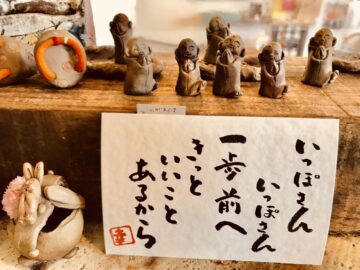 いっぽさん
いっぽさん
一歩前へ
きっと
いいこと
あるから